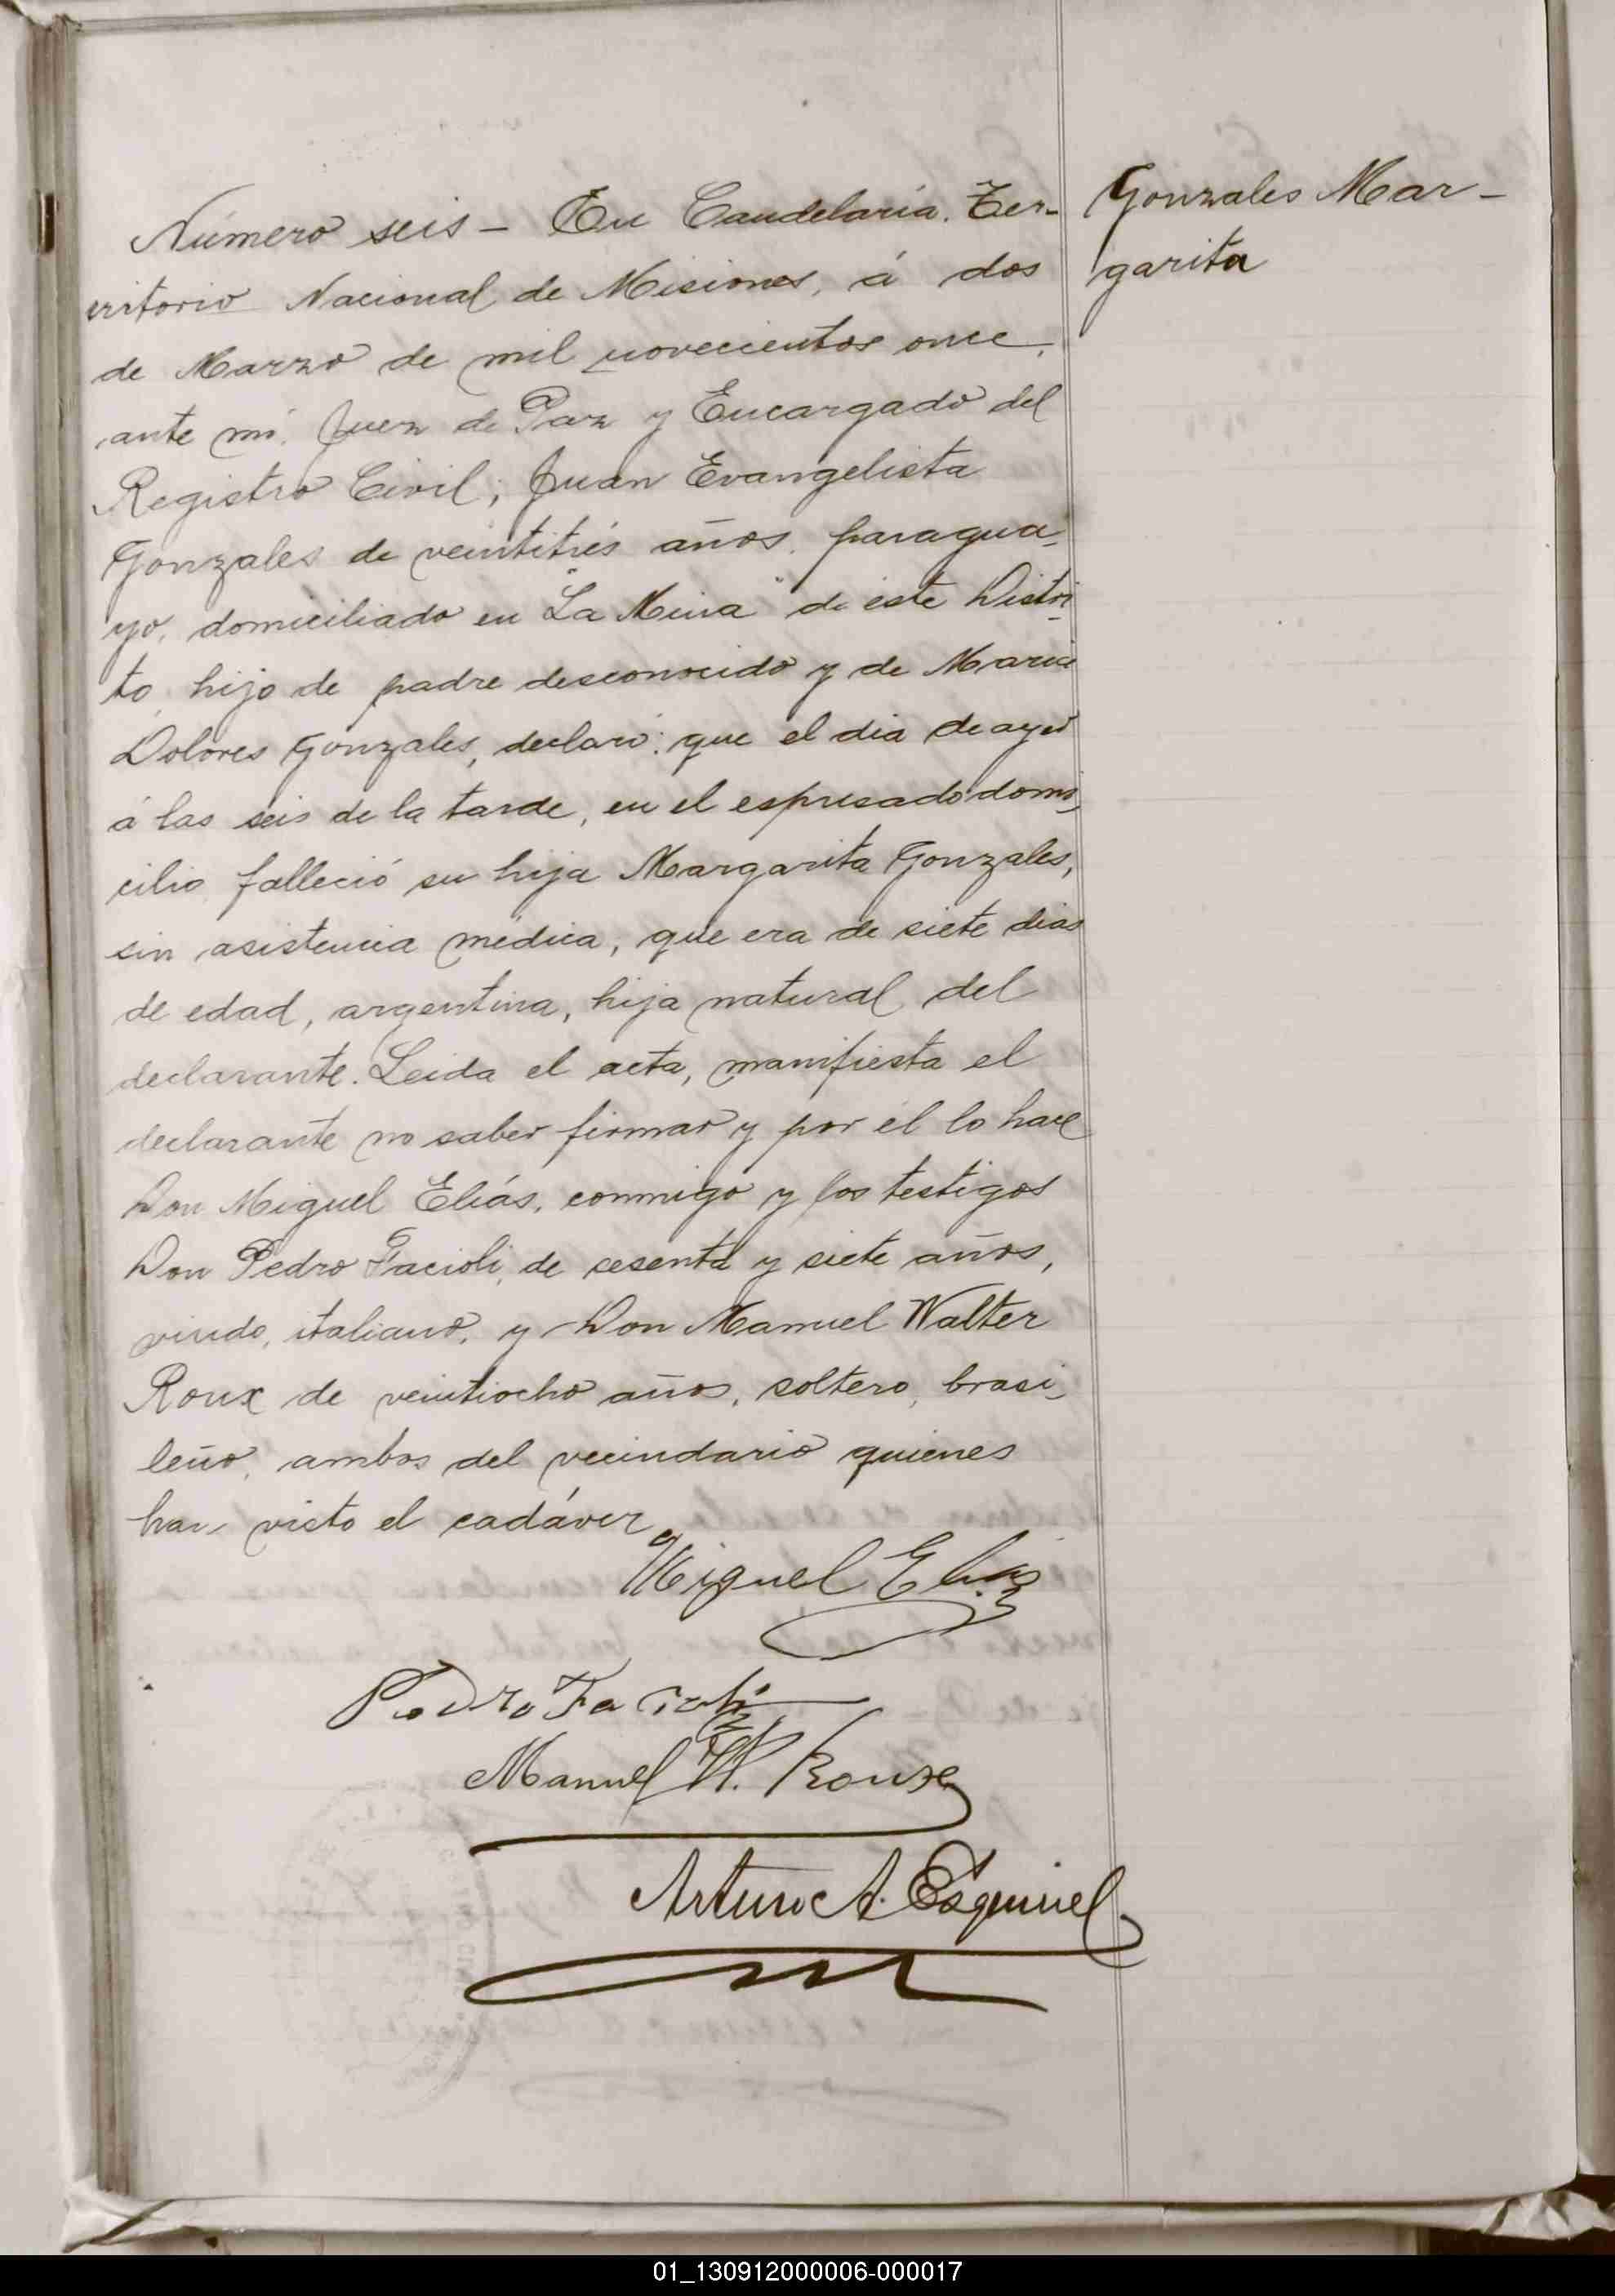 Gonzales Mar-
garita
Número seis - En Candelaria, Ter-
ritorio Nacional de Misiones, á dos
de Marzo de mil novecientos once,
ante mí, Juez de Paz y Encargado del
Registro Civil; Juan Evangelista
Gonzales de veintitrés años, paragua-
yo, domiciliado en "La Mina" de éste Distri-
to, hijo de padre desconocido y de María
Dolores Gonzales, declaró: que el día de ayer
á las seis de la tarde, en el espresado domi-
cilio falleció su hija Margarita Gonzales,
sin asistencia médica, que era de siete días
de edad, argentina, hija natural del
declarante. Leida el acta, manifiesta el
declarante no saber firmar y por él lo hace
Don Miguel Elías, conmigo y los testigos
Don Pedro Facioli, de sesenta y siete años,
viudo, italiano, y Don Manuel Walter
Roux de veintiocho años, soltero, brasi-
leño, ambos del vecindario quienes
han visto el cadáver
Miguel Elias
Pedro Facioli
Manuel W. Roux
Arturo A. Esquivel
01_130912000006-000017